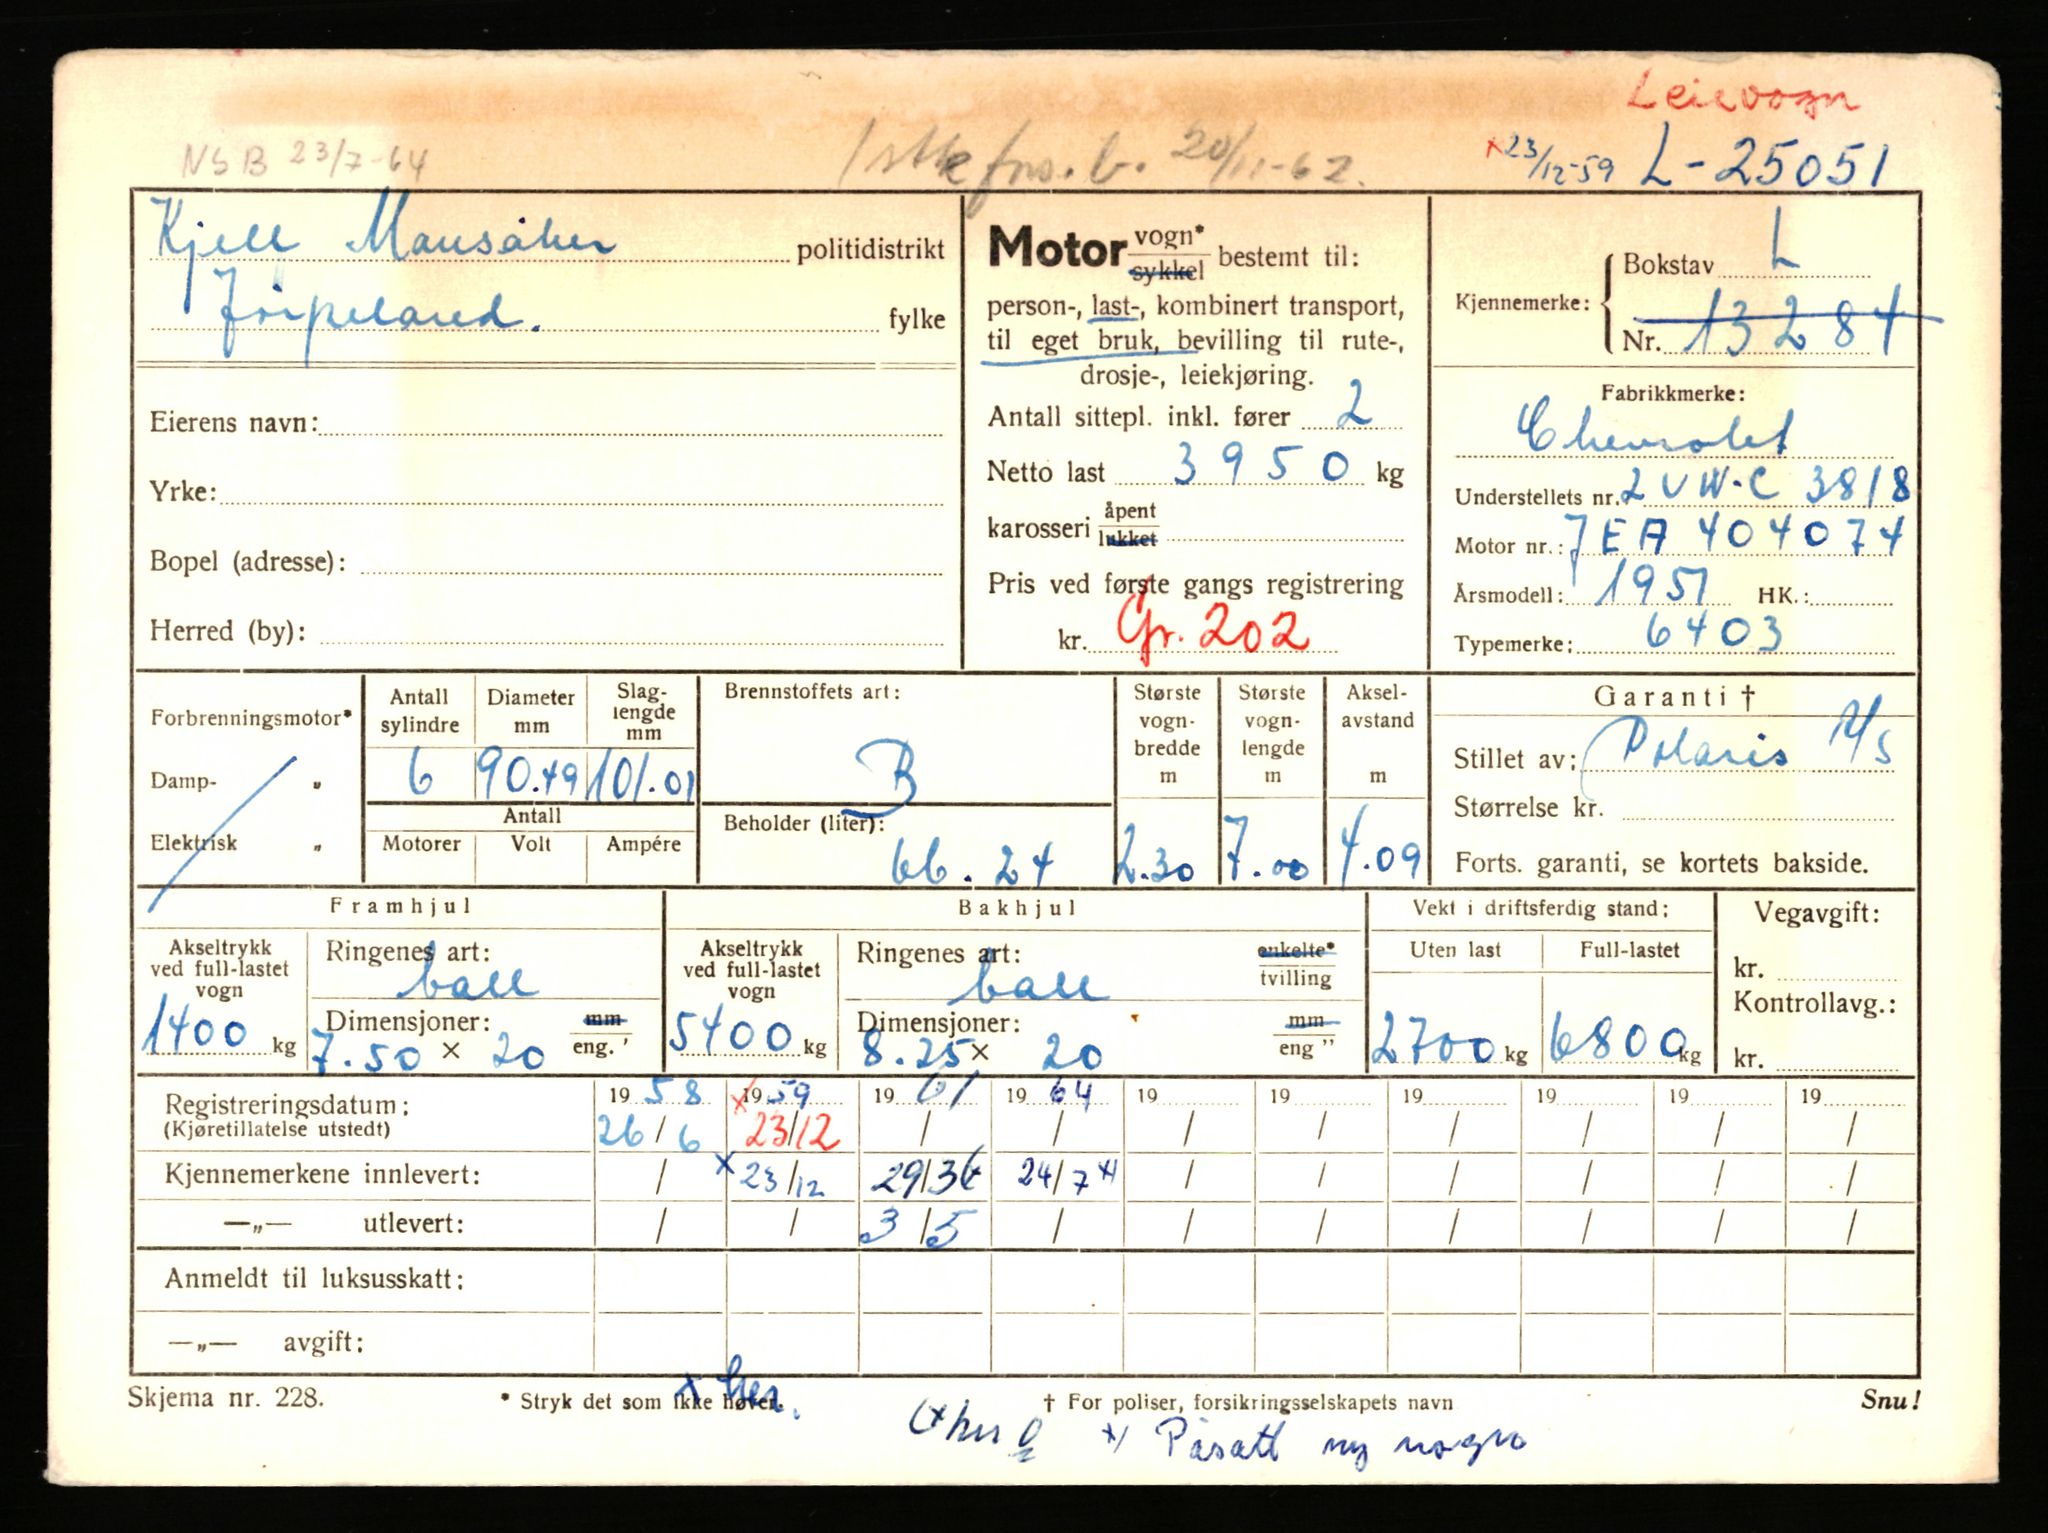 Leievogn
NSB 23/7-64
1 stk frs. b. 20/11-62.
x 23/12-59 L-25051
Kjell Mausåker politidistrikt
Jørpeland. fylke
Eierens navn:
Yrke:
Bopel (adresse):
Herred (by):
Motor vogn*
sykkel bestemt til:
person-, last-, kombinert transport,
til eget bruk, bevilling til rute-,
drosje-, leiekjøring.
Antall sittepl. inkl. fører 2
Netto last 3950 kg
karosseri åpent
lukket
Pris ved første gangs registrering
kr. Gr. 202
Kjennemerke: Bokstav L
Nr. 13284
Fabrikkmerke:
Chevrolet
Understellets nr. 2 UW-C 3818
Motor nr.: JEA 404074
Årsmodell: 1951 HK.:
Typemerke: 6403
Forbrenningsmotor*
Damp- „
Elektrisk „
Antall sylindre Diameter mm Slag-lengde mm
6 90.49 101.01
Antall
Motorer Volt Ampére
Brennstoffets art:
B
Beholder (liter):
66.24
Største vogn-bredde m
2.30
Største vogn-lengde m
7.00
Aksel-avstand m
4.09
Garanti †
Stillet av: Polaris A/S
Størrelse kr.
Forts. garanti, se kortets bakside.
Framhjul
Akseltrykk ved full-lastet vogn
1400 kg
Ringenes art:
ball
Dimensjoner: mm
7.50 × 20 eng. '
Bakhjul
Akseltrykk ved full-lastet vogn
5400 kg
Ringenes art: enkelte*
ball tvilling
Dimensjoner: mm
8.25 × 20 eng ”
Vekt i driftsferdig stand:
Uten last Full-lastet
2700 kg 6800 kg
Vegavgift:
kr.
Kontrollavg.:
kr.
Registreringsdatum: 19 58 x 19 59 19 61 19 64 19 19 19 19 19 19
(Kjøretillatelse utstedt) 26/6 23/12 / / / / / / / /
Kjennemerkene innlevert: / x 23/12 29/3 24/7 *) / / / / / /
—„— utlevert: / / 3/5 / / / / / / /
Anmeldt til luksusskatt:
—„— avgift:
Skjema nr. 228. * Stryk det som ikke høver. † For poliser, forsikringsselskapets navn Snu!
x her.
*) Påsatt ny vogn